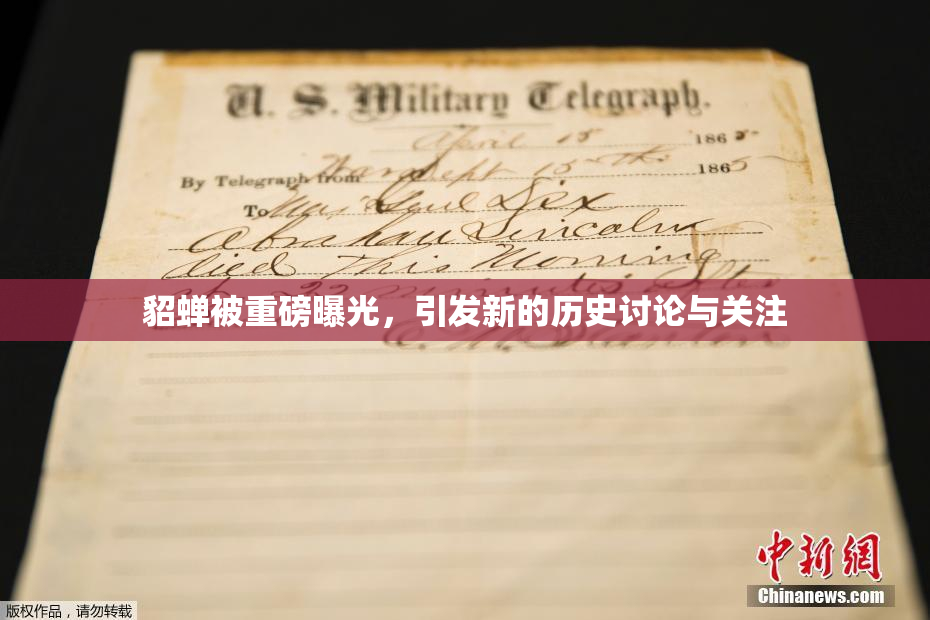 U. S. Military Telegraph.
April 15 1865
By Telegraph from War Dept 15th 1865
To Maj Genl Dix
Abraham Lincoln
died This Morning
at 22 minutes after
貂蝉被重磅曝光，引发新的历史讨论与关注
E. M. Stanton
中新网
Chinanews.com
版权作品，请勿转载